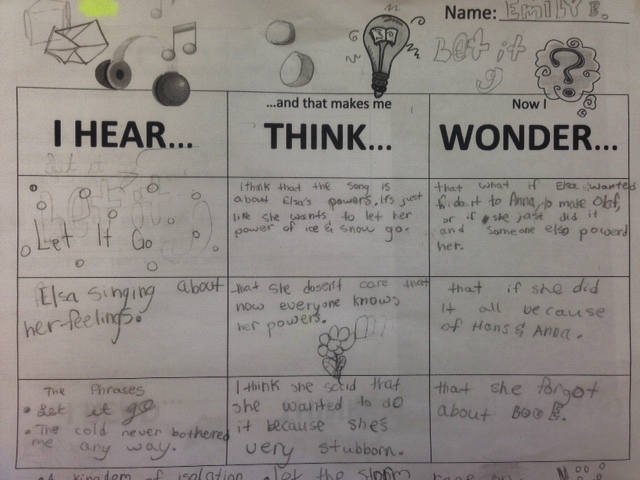 Name: EMILY B.
Let it
go
...and that makes me
Now I
I HEAR...
THINK...
WONDER...
Let it
Let It Go
I think that the song is
about Elsa's powers, it's just
like she wants to let her
power of ice & snow go.
that what if Elsa wanted
to do it to Anna, to make Olaf,
or if she just did it
and someone else powerd
her.
Elsa singing about
her feelings.
that she doesn't care that
now everyone knows
her powers.
that if she did
it all because
of Hans & Anna.
The Phrases
• Let it go
• The cold never bothered
me any way.
I think she said that
she wanted to do
it because she's
very stubborn.
that she forgot
about
kingdom of isolation let the storm rage on